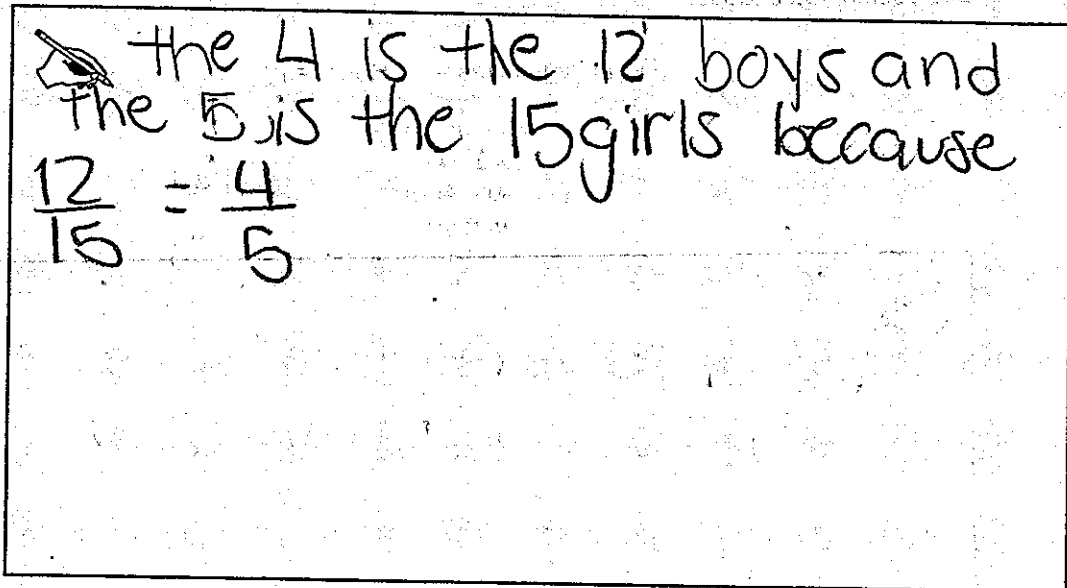 the 4 is the 12 boys and
the 5 is the 15 girls because
12/15 = 4/5